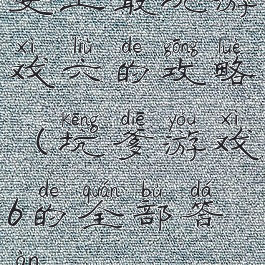 史上最坑游
xì liù de gōng lüè
戏六的攻略
kēng diē yóu xì
(坑爹游戏
de quán bù dá
6的全部答
àn